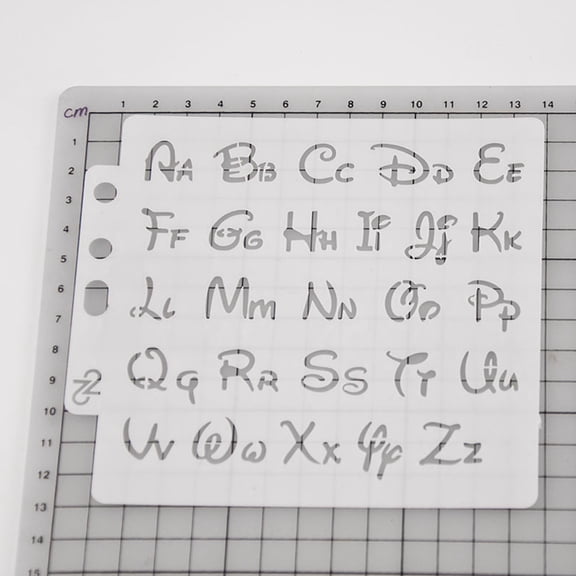 cm 1 2 3 4 5 6 7 8 9 10 11 12 13 14
1
2
3
4
5
6
7
8
9
10
11
12
13
14
15
Aa Bb Cc Dd Ee
Ff Gg Hh Ii Jj Kk
Ll Mm Nn Oo Pp
Qq Rr Ss Tt Uu
Vv Ww Xx Yy Zz
22